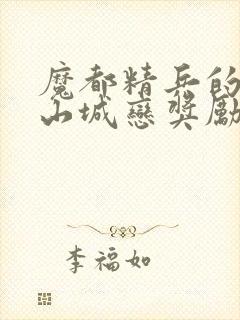 魔都精兵的
山城戀獎勵
李福如